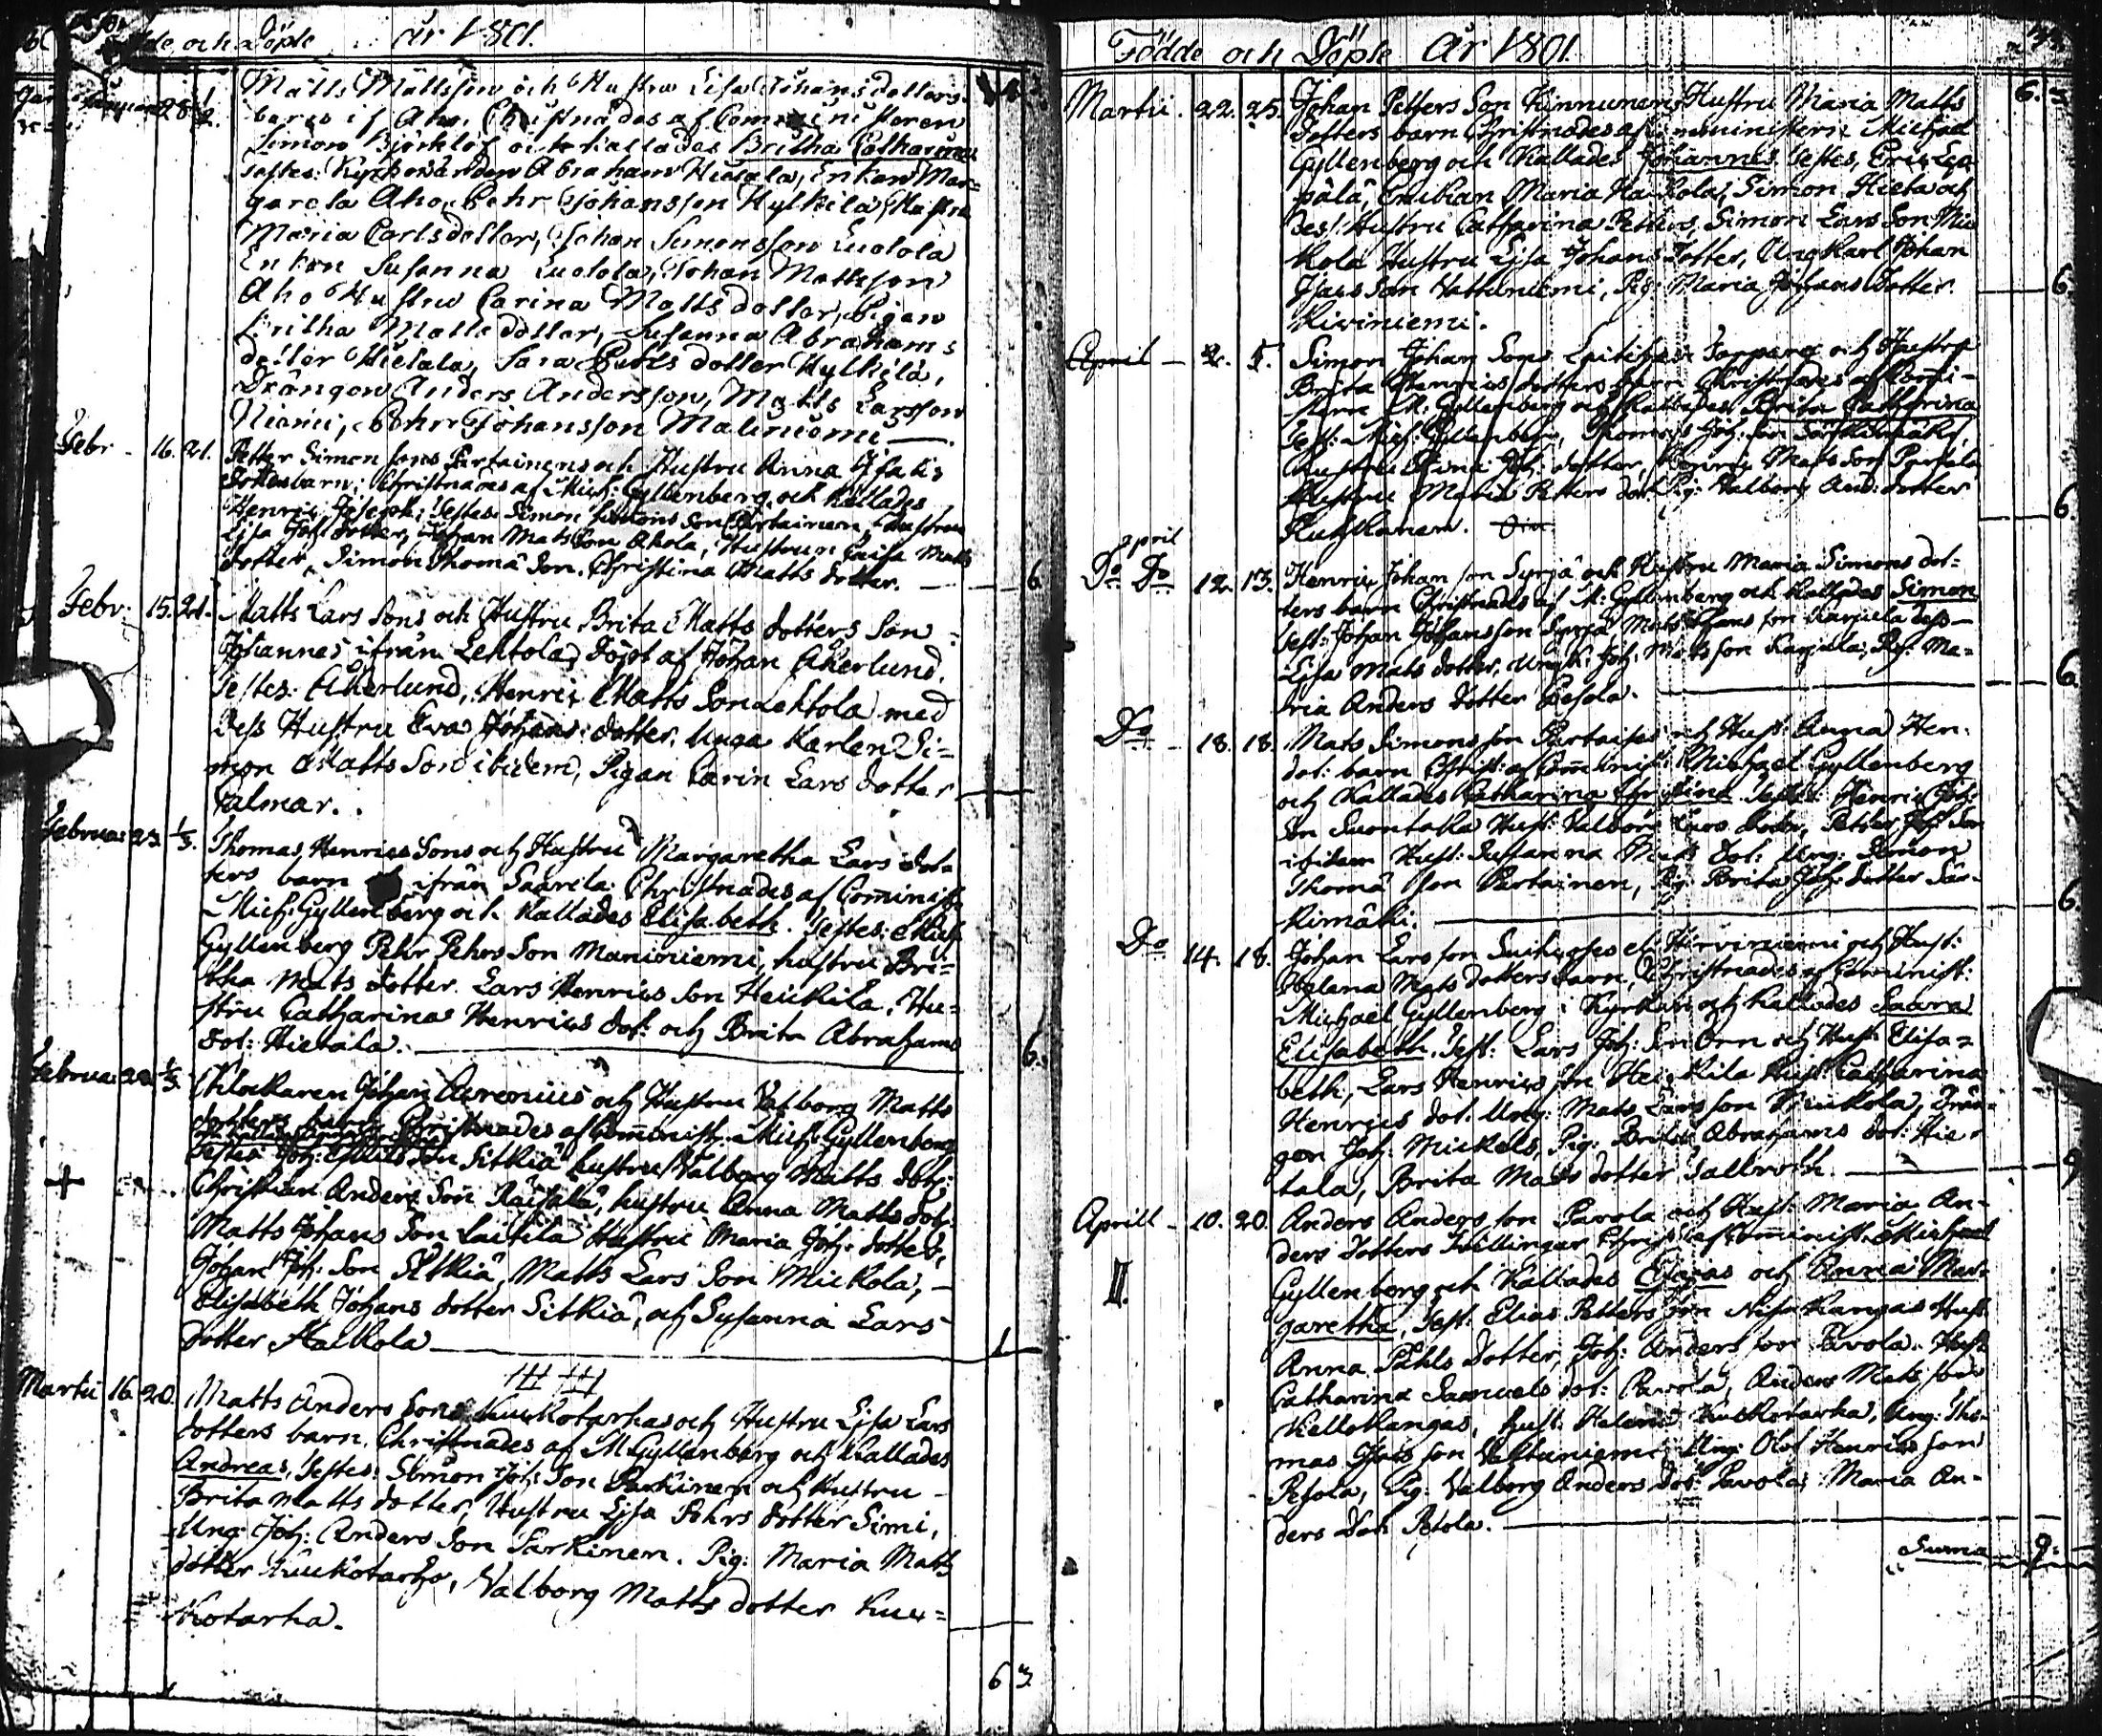 och Döpte år 1801.
Matts Mattsson och Hustru Lisa Johansdotters
barn if Aho. Christnades af Comministeren
Simon Björklöf och kallades Britha Catharina
testes: Kyrkovärden Abraham Hietala, Enkan Mar=
gareta Aho, Pehr Johansson Kylkilä, Hustru
Maria Carlsdotter, Johan Simonsson Luolola
Enkan Susanna Luolola, Johan Mattsson
Aho Hustru Carina Matts dotter, Pigan
Britha Matts dotter, Susanna Abrahams
dotter Hietala, Sara Pehrs dotter Kylkilä,
Drängen Anders Andersson, Matts Larsson
Niemi, Pehr Johansson Matiniemi
Febr. 16. 21. Petter Simon sons Partainens och Hustru Anna Isaks
dotters barn; Christnades af Mich: Gyllenberg och kallades
Henric Joseph; Testes Simon Simons Son Partainen, Hustrun
Lisa Joh: dotter, Johan Mats Son Ahola, Hustrun Caisa Matts
dotter, Simon Thomä Son, Christina Matts dotter. 6
Febr: 15. 21. Matts Lars Sons och Hustru Brita Matts dotters Son
Johannes ifrån Lehtola, Döpt af Johan Åkerlund.
Testes: Åkerlund, Henric Matts Son Lehtola med
Dess Hustru Eva Johans dotter. Unga Karlen Si=
mon Matts Son ibidem, Pigan Carin Lars dotter
Valmar.
Februa: 23. 1/3. Thomas Henrics Sons och Hustru Margaretha Lars dot=
ters barn ifrån Saarela. Christnades af Comminist:
Mich: Gyllenberg och kallades Elisabeth. Testes: Mich:
Gyllenberg Pehr Pehrs Son Maniniemi, hustru Bri=
tha Mats dotter. Lars Henrics Son Heickilä. Hu=
stru Catharina Henrics dot: och Brita Abrahams
dot: Hietala. 6.
Februa: 22. 1/3. Klockaren Johan Aurenius och Hustru Valborg Matts
dotters barn Christnades af Comminist: Mich: Gyllenberg
Testes Joh: Son Sitkiä hustru Valborg Matts dot:
Christian Anders Son Räisälä, hustru Anna Matts dot:
Matts Johans Son Laitila Hustru Maria Joh: dotter,
Johan Joh: Son Sitkiä, Matts Lars Son Mickola,
Elisabeth Johans dotter Sitkiä, och Susanna Lars
dotter Haikola
Martii 16. 20. Matts Anders Sons Kuukotarhas och Hustru Lisa Lars
dotters barn. Christnades af M Gyllenberg och kallades
Andreas, Testes: Simon Joh: Son Parkinen och Hustru
Brita Matts dotter, Hustru Lisa Pehrs dotter Simi,
Ung: Joh: Anders Son Parkinen. Pig: Maria Matts
dotter Kuukotarho, Valborg Matts dotter Kuu=
kotarha.
6 3.
Födde och Döpte År 1801.
Martii. 22. 25. Johan Petters Son Kinnunens Hustru Maria Matts
dotters barn Christnades af Comministern Michael
Gyllenberg och kallades Johannes. Testes, Eric Lep
pälä, Enckan Maria Haikola, Simon Hieta och
Dess Hustru Catharina Petters, Simon Lars Son Mic
kola Hustru Lisa Johans dotter, Ung Karl Johan
Isacs Son Vattuniemi, Pig: Maria Johans dotter
Kiviniemi.
April 2. 5. Simon Johan Sons och Hustru
Brita Henrics dotters barn Christnades af Comi-
stern M: Gyllenberg och kallades Brita Catharina
Test: Mich: Gyllenberg, Thomas Joh: Son Särkimäki,
Hustru Anna Joh: dotter, Henric Mats Son
Hustru Maria Petters dot: Pig: Valborg And: dotter
April
Do Do 12. 13. Henric Johan son Syrjä och Hustru Maria Simons dot=
ters barn Christnades af M: Gyllenberg och kallades Simon
Test: Johan Johansson Syrjä, Mats Johans son Karjula dess
Lisa Mats dotter, Ung K: Joh: Mats son Karjula, Pig: Ma=
ria Anders dotter Pesola.
Do 18. 18. Mats Simons son Partaises och Hust: Anna Hen:
dot: barn Christ: af Comminist: Michael Gyllenberg
och kallades Catharina Christina. Testes: Henric Joh:
Son Suontaka Hust: Valborg Lars dotter, Petter Joh: Son
ibidem Hust: Susanna Mats dot: Ung: Simon
Thomä Son Partainen, Pig: Brita Joh: dotter Sär-
kimäki.
Do 14. 18. Johan Lars son Hirviniemi och Hust:
Helena Mats dotters barn, Christnades af Comminist:
Michael Gyllenberg i Kyrkan och kallades Saara
Elisabeth. Test: Lars Joh: Son Orn och Hust: Elisa=
beth, Lars Henrics son Heickilä Hust: Catharina
Henrics dot. Ung: Mats Lars son Mickola, Drän=
gen Joh: Mickels, Pig: Brita Abrahams dot: Hie=
tala, Brita Mats dotter Tallbroth. 9
Aprill 10. 20. Anders Anders son Pavola och Hust: Maria An-
II. ders dotters Tvillingar Christ: af Comminist: Michael
Gyllenberg och kallades Elias och Anna Mar=
garetha, Test: Elias Petters Son Nisakangas Hust:
Anna Påhls dotter, Joh: Anders son Pavola. Hust:
Catharina Samuels dot: Pavola, Anders Mats son
Kellokangas, hust: Helena Kuukotarha, Ung: Tho-
mas Isacs son Vattuniemi, Ung: Olof Henrics son
Pesola, Pig: Valborg Anders dot: Pavola, Maria An-
ders dot: Petola.
Summa 9.